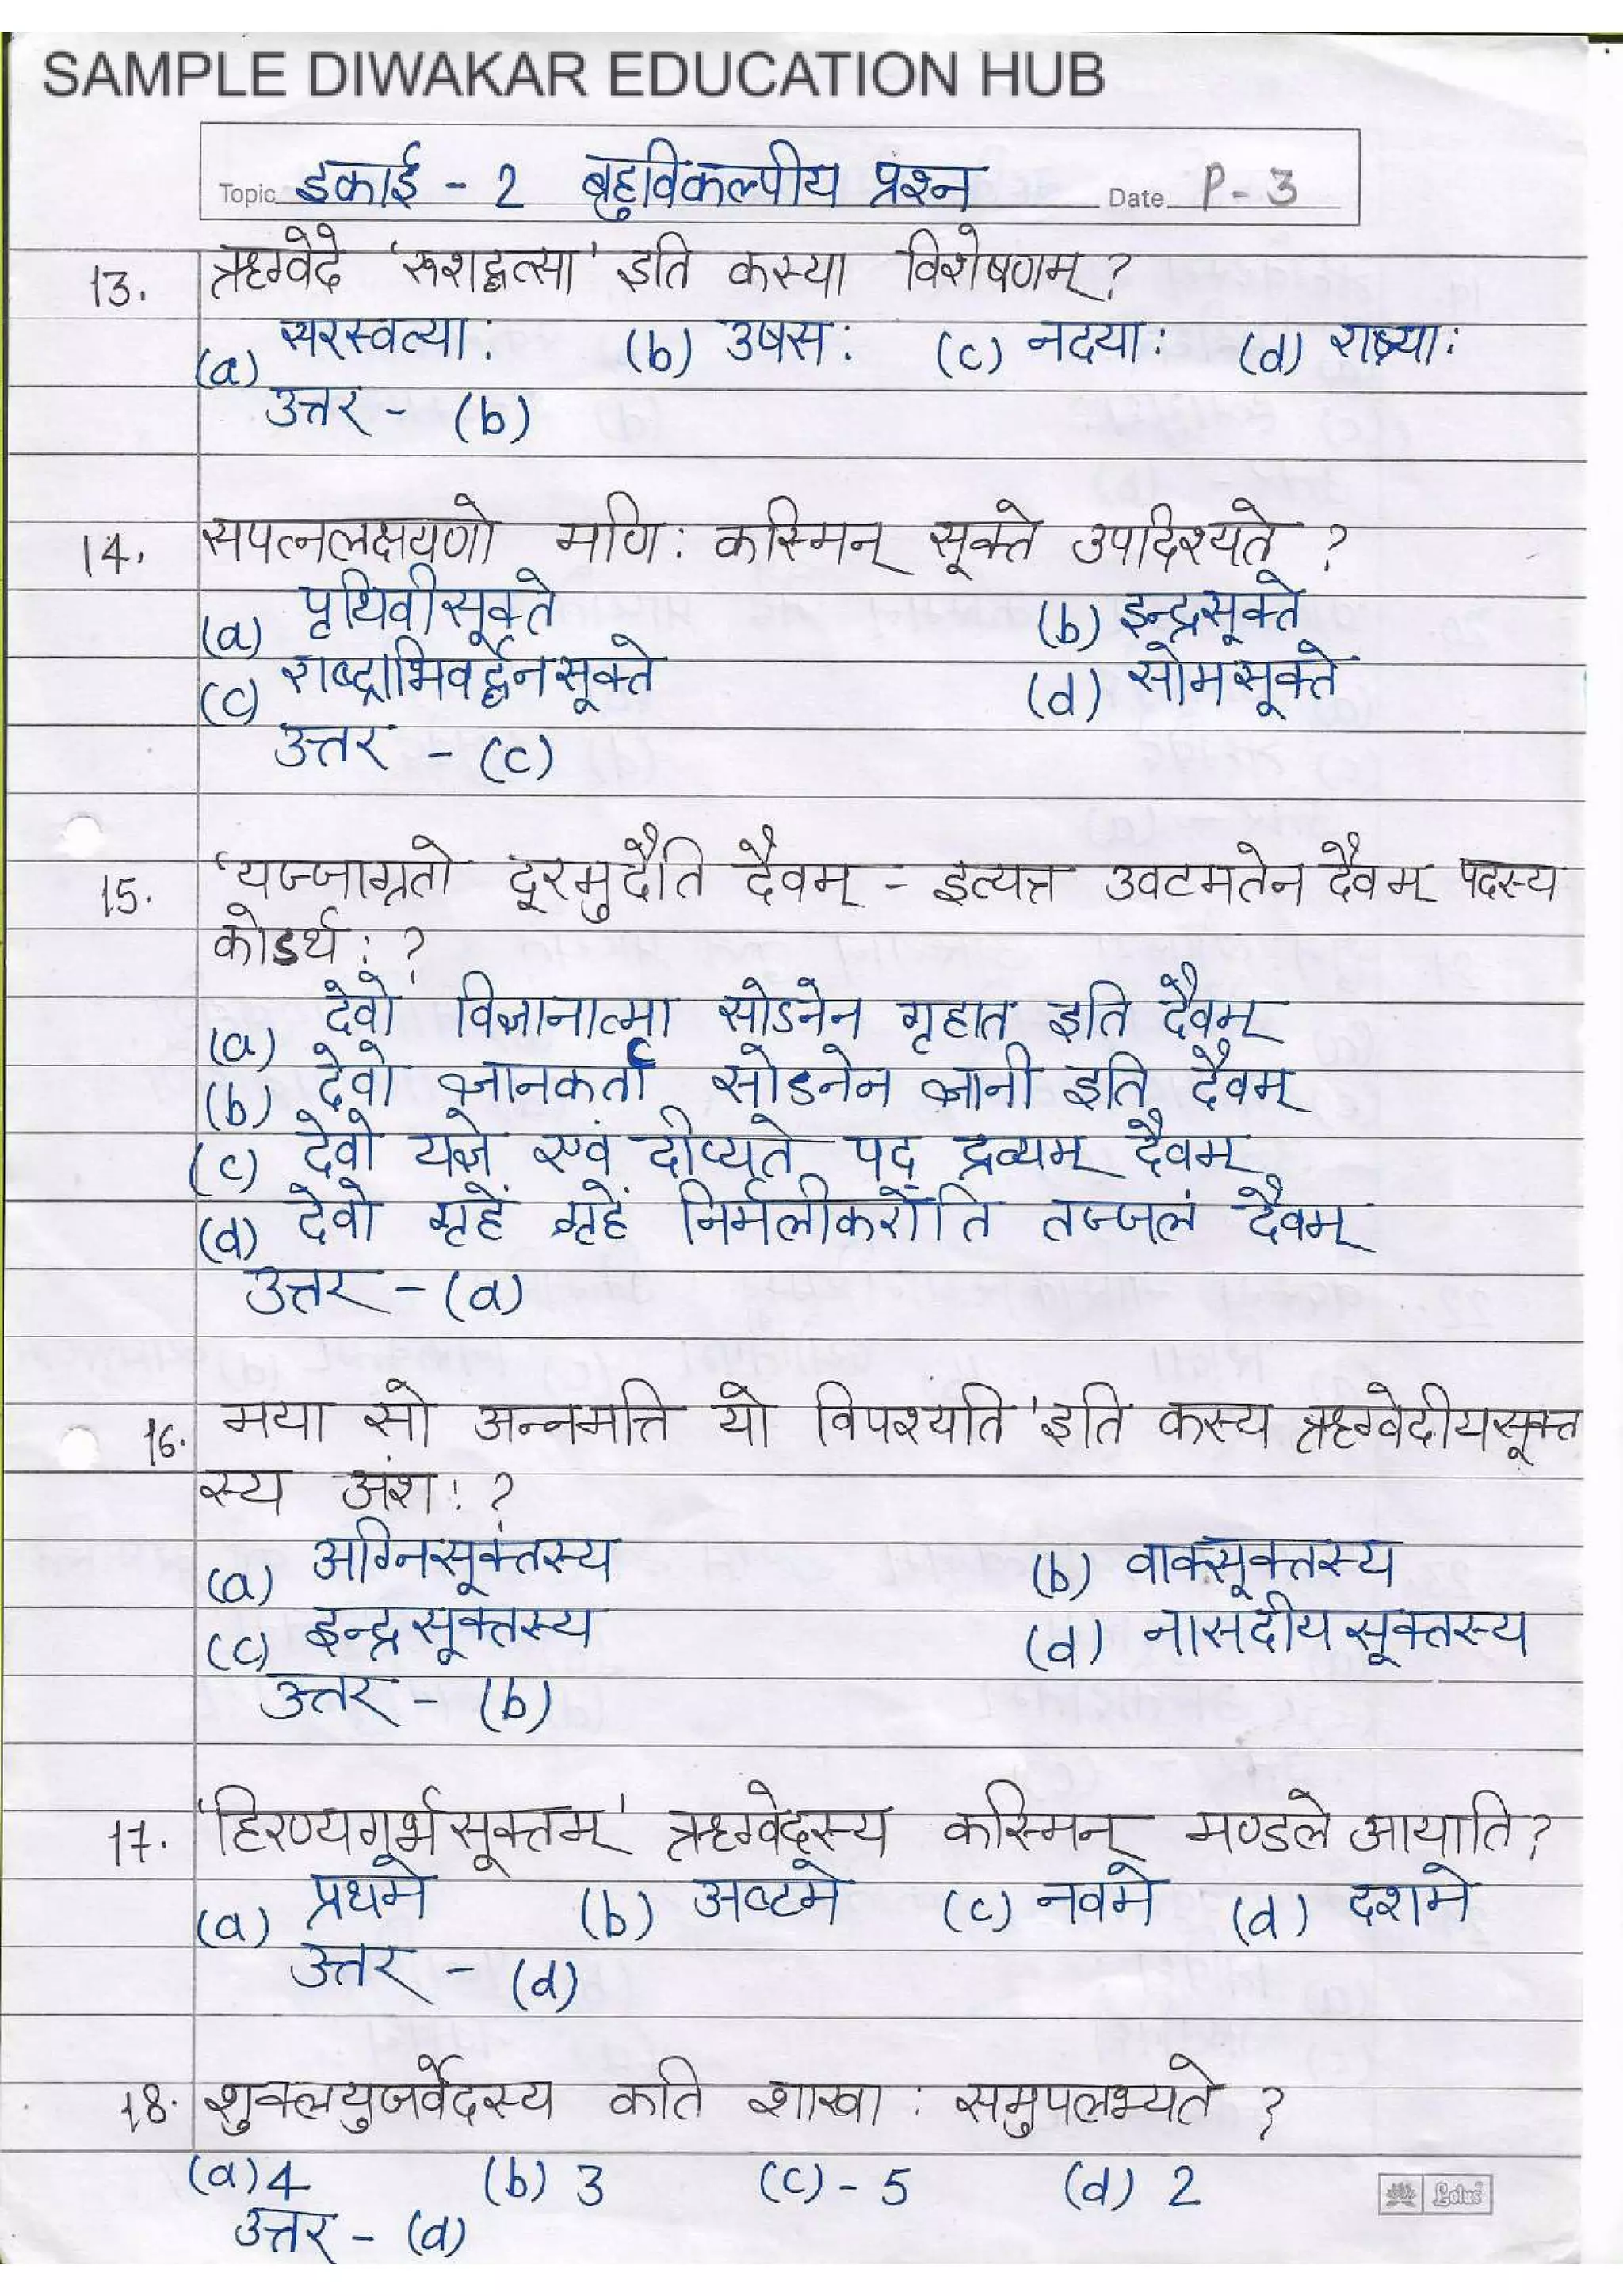 SAMPLE DIWAKAR EDUCATION HUB
Topic इकाई - 2 बहुविकल्पीय प्रश्न Date P - 3
13. ऋग्वेदे 'रूशद्वत्सा' इति कस्या विशेषणम् ?
(a) सरस्वत्या: (b) उषस: (c) नदया: (d) रात्र्या:
उत्तर - (b)
14. सपत्नलक्षयणो मणि: कस्मिन् सूक्ते उपदिश्यते ?
(a) पृथिवीसूक्ते (b) इन्द्रसूक्ते
(c) राष्ट्राभिवर्द्धनसूक्ते (d) सोमसूक्ते
उत्तर - (c)
15. 'यज्जाग्रतो दूरमुदैति दैवम् - इत्यत्र उवटमतेन दैवम् पदस्य
कोडर्थ: ?
(a) देवो विज्ञानात्मा सोडनेन गृहात इति दैवम्
(b) देवो ज्ञानकर्ता सोडनेन ज्ञानी इति दैवम्
(c) देवो यज्ञे एवं दीप्यते पद् द्रव्यम् दैवम्
(d) देवो गृहें गृहें निर्मलीकरोति तज्जलं दैवम्
उत्तर - (a)
16. मया सो अन्नमत्ति यो विपश्यति 'इति कस्य ऋग्वेदीयसूक्त
स्य अंश: ?
(a) अग्निसूक्तस्य (b) वाक्सूक्तस्य
(c) इन्द्रसूक्तस्य (d) नासदीयसूक्तस्य
उत्तर - (b)
17. 'हिरण्यगर्भसूक्तम्' ऋग्वेदस्य कस्मिन् मण्डले आयाति ?
(a) प्रथमे (b) अष्टमे (c) नवमे (d) दशमे
उत्तर - (d)
18. शुक्लयुजर्वेदस्य कति शाखा: समुपलभ्यते ?
(a) 4 (b) 3 (c) - 5 (d) 2
उत्तर - (d)
Lotus